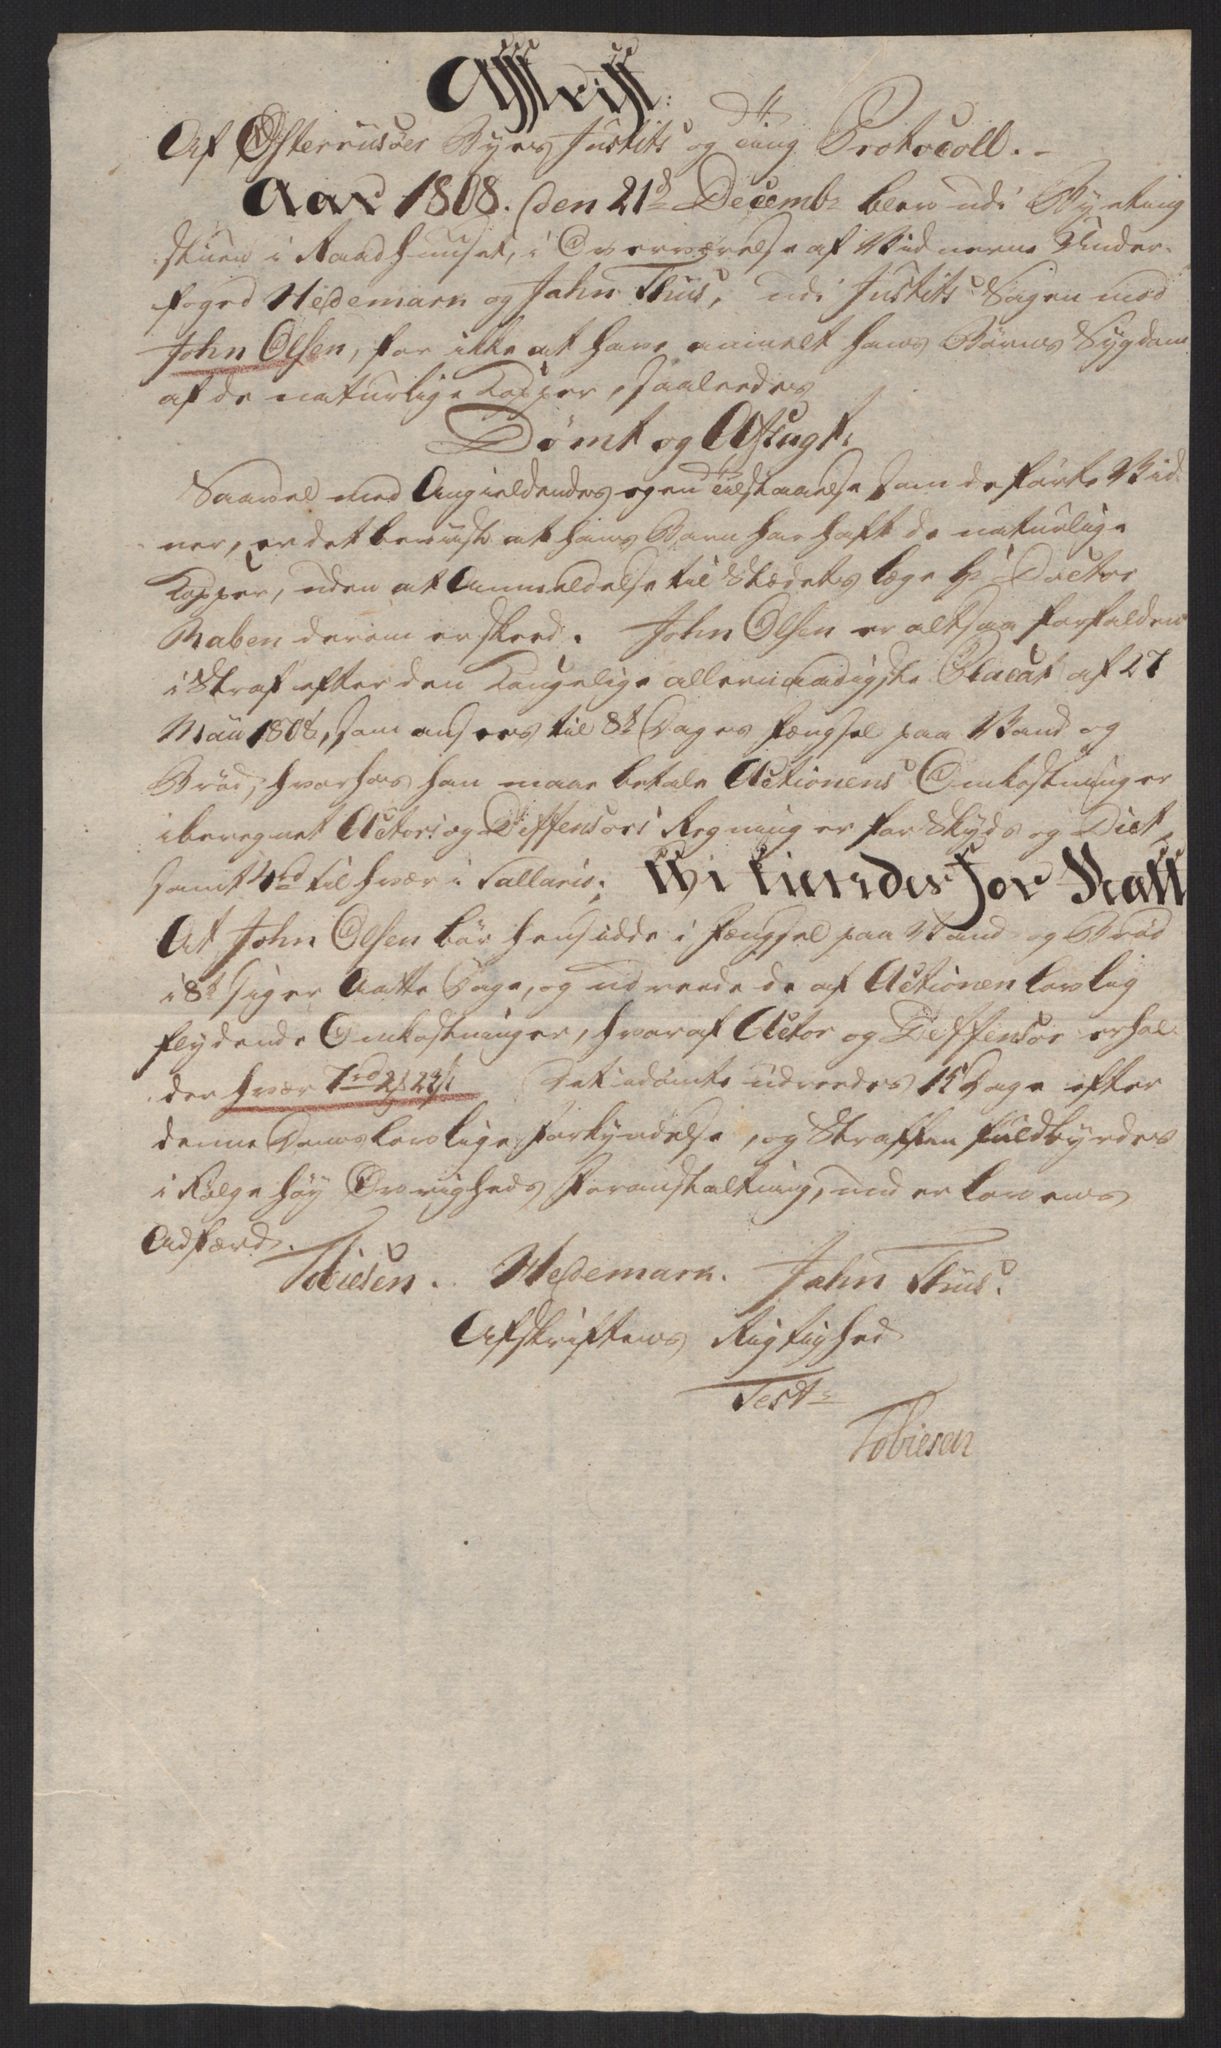 Afskrift
Af Østerriisøer Byes Justits og Ting Protocoll. -
Aar 1808. den 21de Decembr blev udi Byeting
stuen i Raadhuuset, i Overværelse af Vidnerne Under-
foged Hedemark og Jahn Thiis, udi Justits Sagen mod
John Olsen, for ikke at have anmelt hans Børns Sygdom
af de naturlige Kopper, saaledes
Dømt og Afsagt:
Saavel med Angieldendes egen Tilstaaelse som de førte Vid-
ner, er det beviist at hans Barn har haft de naturlige
Kopper, uden at Anmeldelse til Stædets Læge Hr Doctor
Raben derom er skeed. John Olsen er altsaa forfalden
i Straf efter den Kongelige allernaadigste Placat af 27
Maii 1808, som ansees til 8te Dages Fængsel paa Vand og
Brød, hvorhos han maae betale Actionens Omkostninger
iberegnet Actors og Deffensors Regninger for Skyds og Diet,
samt 4rd til hvær i Sallario. Thi kiendes for Ratt
At John Olsen bør hensidde i Fængsel paa Vand og Brød
i 8te siger Aatte Dage, og udreede de af Actionen lovlig
flydende Omkostninger, hvoraf Actor og Deffensor erhol-
der hvær 7rd 2 22s Det idømte udreedes 15 Dage efter
denne Doms lovlige Forkyndelse, og Straffen fuldbyrdes
i Følge høy Øvrigheds Foranstaltning, under Lovens
Adfærd.
Tobiesen. Hedemark. Jahn Thiis.
Afskriftens Rigtighed
Test:
Tobiesen